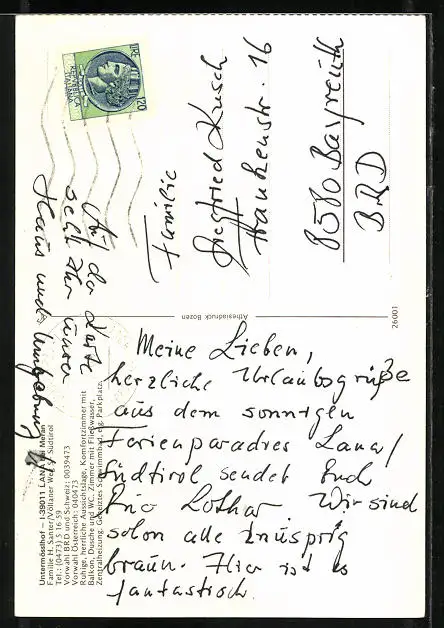 Meine Lieben,
herzliche Urlaubsgrüße
aus dem sonnigen
Ferienparadies Lana/
Südtirol sendet Euch
Lothar Wir sind
schon alle knusprig
braun. Hier ist es
fantastisch.
Auf der Karte
seht Ihr unser
Haus und Umgebung
Familie
Siegfried Kusch
Frankenstr. 16
8580 Bayreuth
BRD
REPUBBLICA
ITALIANA
LIRE
120
Athesiadruck Bozen
26001
Untermöslhof – I-39011 LANA bei Meran
Familie H. Santer/Völlaner Weg 5/ Südtirol
Tel.: (0473) 5 16 59
Vorwahl BRD und Schweiz: 0039473
Vorwahl Österreich: 040473
Ruhige, herrliche Aussichtslage, Komfortzimmer mit
Balkon, Dusche und WC. Zimmer mit Fließwasser,
Zentralheizung. Geheiztes Schwimmbad, eig. Parkplatz.